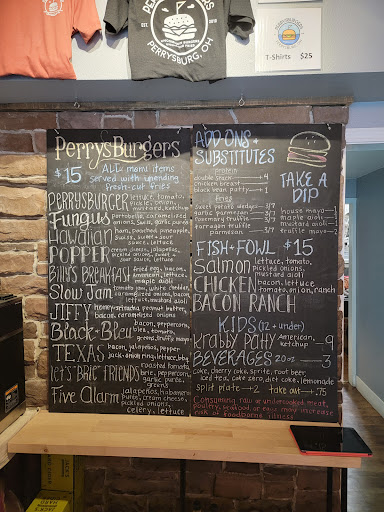 PERRYSBURG, OH
T-Shirts $25
PerrysBurgers
$15
ALL main items
served with unending
fresh-cut fries
PERRYSBURGER lettuce, tomato,
pickle, onion,
Fungus portobello, caramelized
onions, swiss, garlic puree
Hawaiian ham, pineapple, pineapple
sauce, lettuce
POPPER cream cheese, jalapeños,
pickled onions, sweet + sour
sauce, lettuce
Billy's BREAKFAST fried egg, bacon,
American, lettuce,
maple aioli
Slow Jam
caramelized onions, bacon,
lettuce, mustard aioli
JIFFY honey-sriracha peanut butter,
bacon, caramelized onions
Black + Bleu bacon, peppercorn,
bleu, tomato,
greens, truffle mayo
TEXAS bacon, jalapeño, pepper
jack, onion ring, lettuce, bbq
let's BRIE FRIENDS roasted tomato,
brie, peppercorn,
garlic puree,
greens
Five Alarm jalapeños, habanero
puree, cream cheese,
pickled onions,
celery, lettuce
ADD-ONS +
SUBSTITUTES
protein
double steak +4
chicken breast
black bean patty +1
fries
sweet potato wedges 3/7
garlic parmesan 3/7
rosemary truffle 5/9
tarragon truffle
parmesan 5/9
TAKE A
DIP
house mayo 1
maple aioli 1
mustard aioli 1
truffle mayo 2
FISH + FOWL $15
Salmon lettuce, tomato,
pickled onions,
mustard aioli
CHICKEN bacon, lettuce,
BACON RANCH tomato, onion, ranch
KIDS (12 + under)
Krabby Patty American, ketchup 9
BEVERAGES 20 oz 3
coke, cherry coke, sprite, root beer,
iced tea, coke zero, diet coke, lemonade
split plate +3 take out +.75
Consuming raw or undercooked meat,
poultry, seafood or eggs may increase
risk of foodborne illness